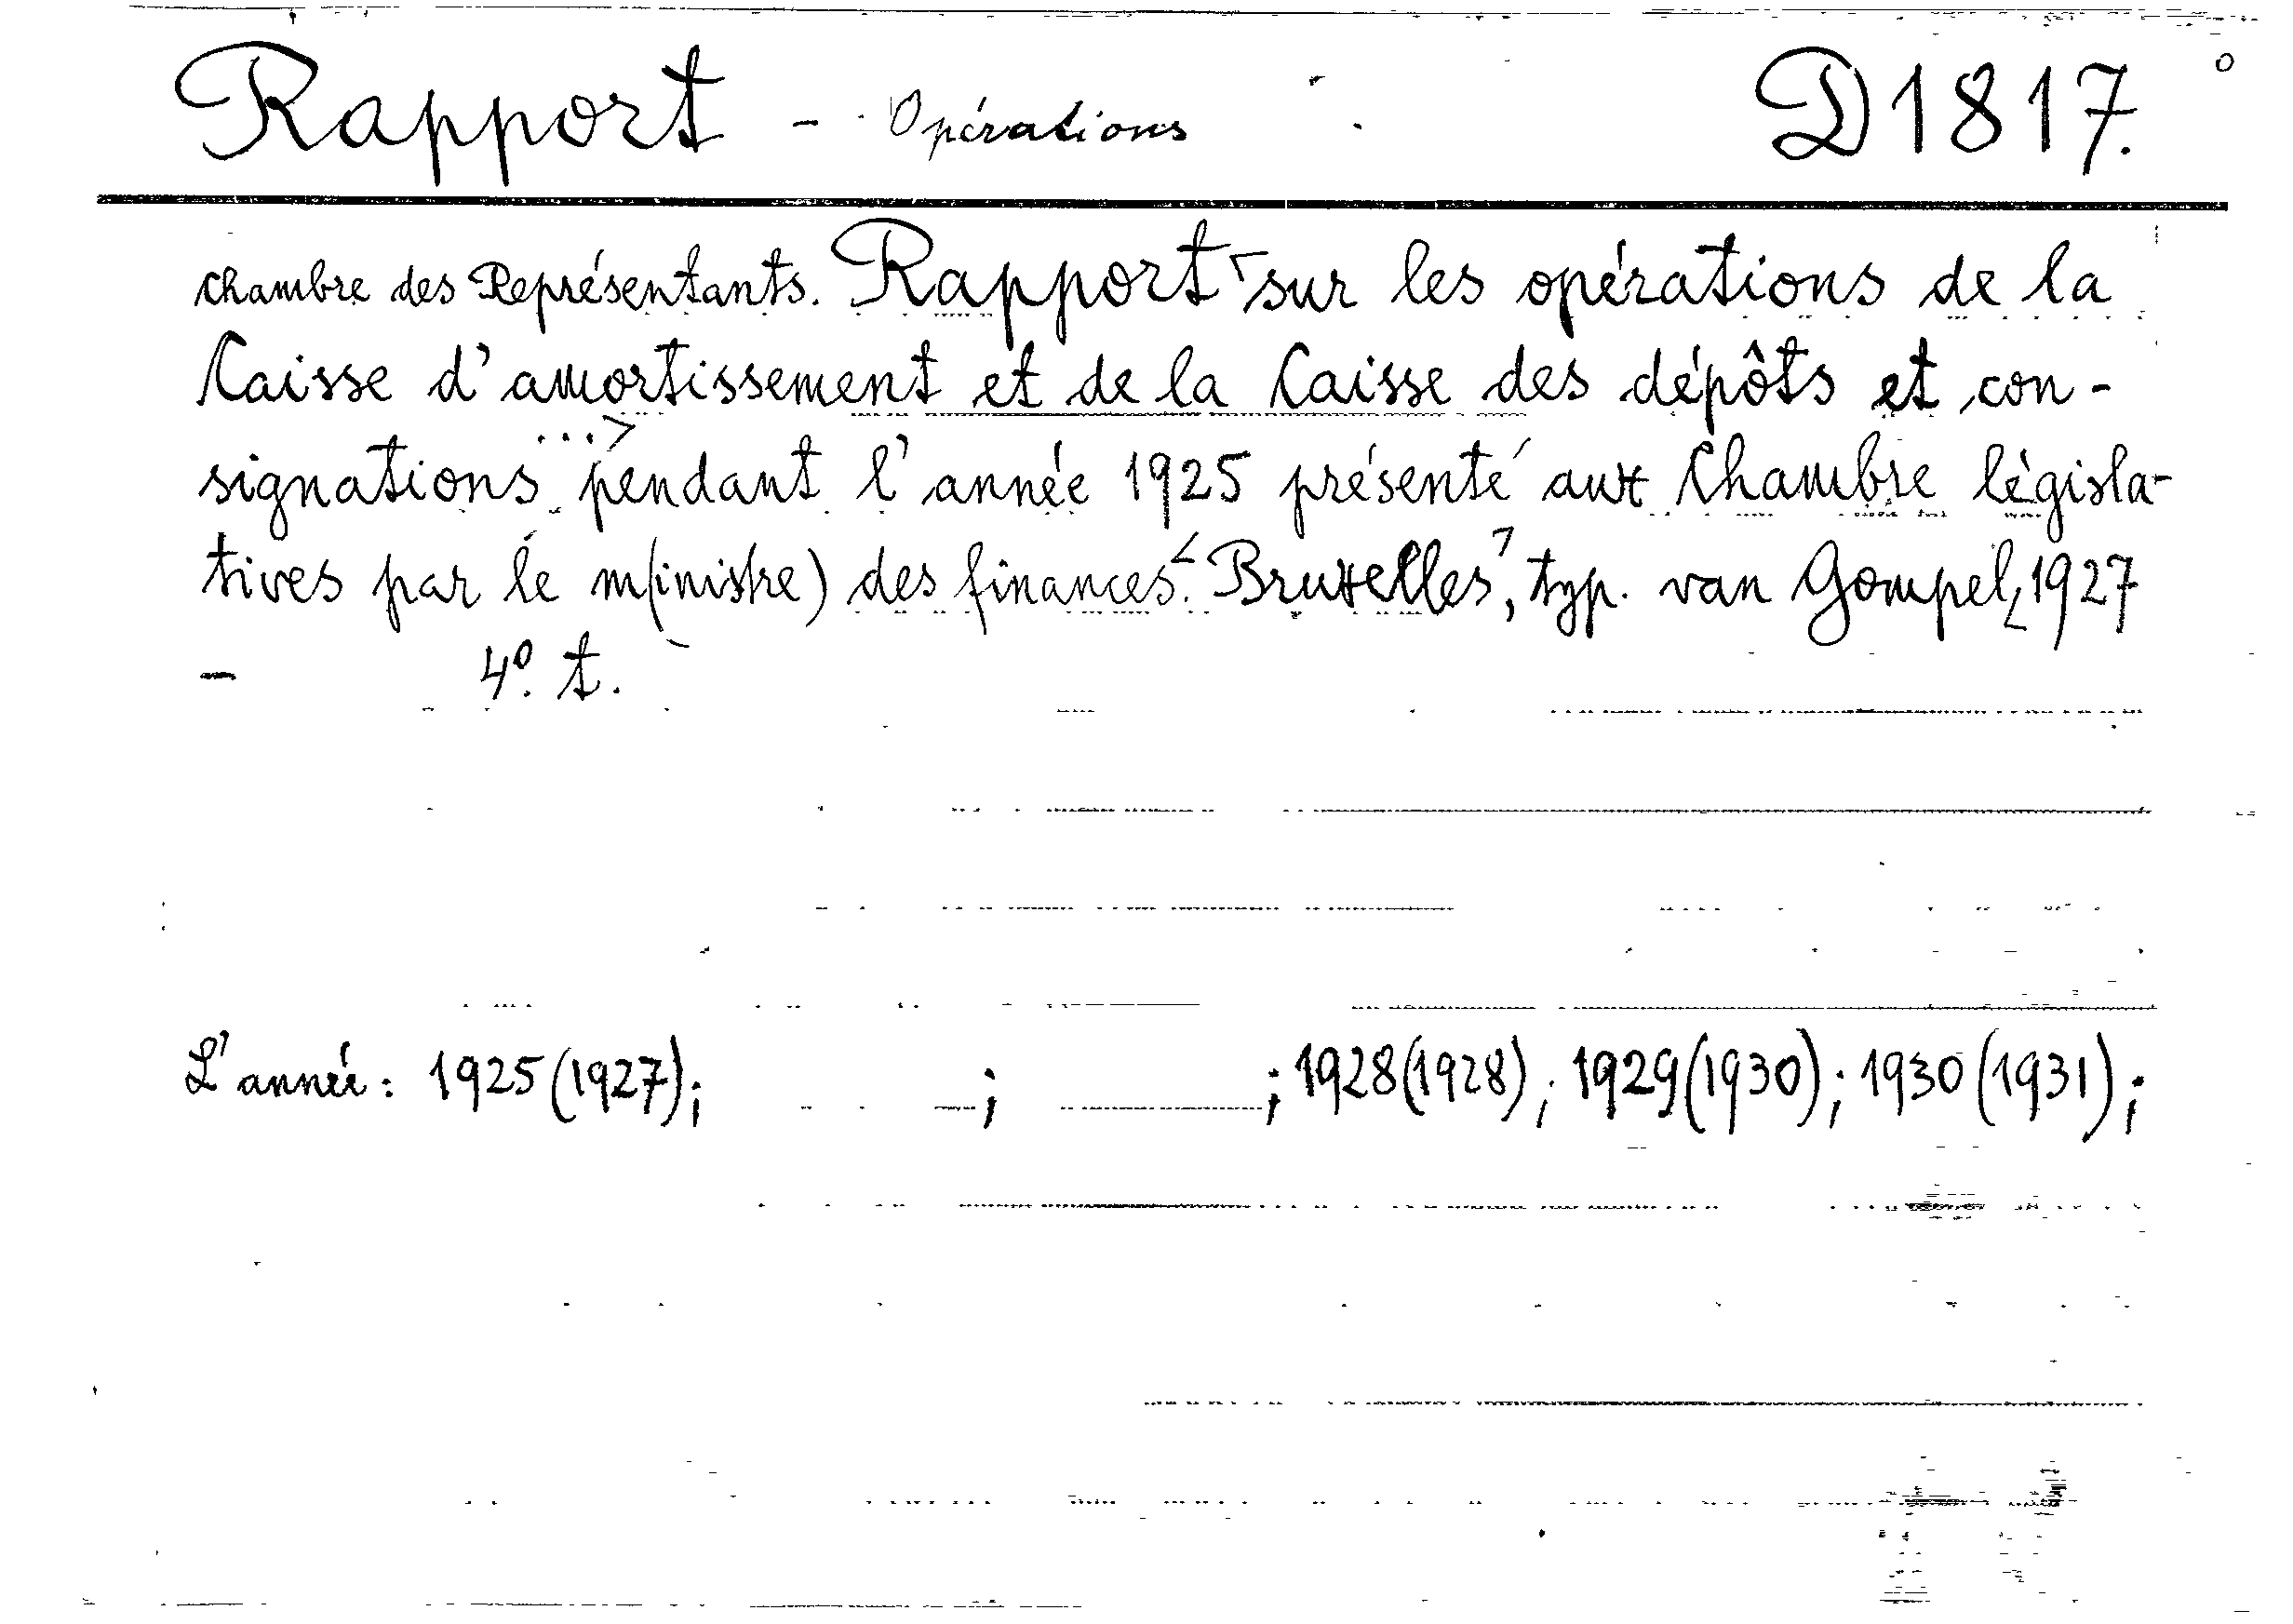 Rapport - Opérations D1817.
Chambre des Représentants. Rapport sur les opérations de la
Caisse d'amortissement et de la Caisse des dépôts et con-
signations ...> pendant l'année 1925 présenté aux Chambre législa-
tives par le m(inistre) des finances. <Bruxelles>, typ. van Gompel, 1927
- 4º. t.
L'année: 1925(1927); ; ; 1928(1928); 1929(1930); 1930(1931);